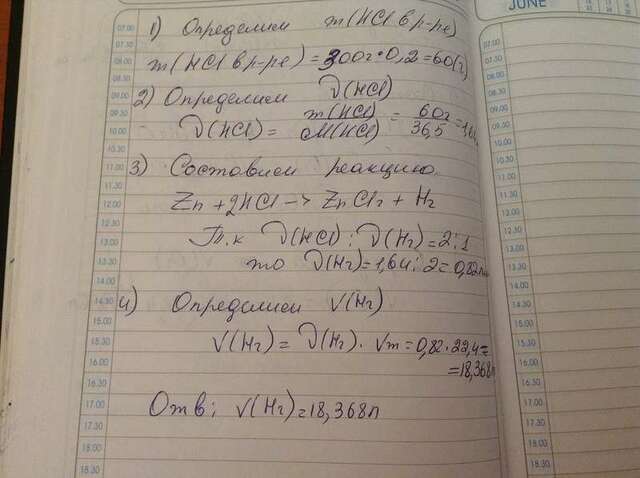 JUNE
1) Определим m(HCl в р-ре)
m(HCl в р-ре) = 300г · 0,2 = 60(г)
2) Определим ν(HCl)
ν(HCl) = m(HCl) / M(HCl) = 60г / 36,5 = 1,64
3) Составим реакцию.
Zn + 2HCl -> ZnCl₂ + H₂
Т.к ν(HCl) : ν(H₂) = 2 : 1
то ν(H₂) = 1,64 : 2 = 0,82
4) Определим V(H₂)
V(H₂) = ν(H₂) · Vm = 0,82 · 22,4 =
= 18,368л
Отв: V(H₂) = 18,368л
07.00
07.30
08.00
08.30
09.00
09.30
10.00
10.30
11.00
11.30
12.00
12.30
13.00
13.30
14.00
14.30
15.00
15.30
16.00
16.30
17.00
17.30
18.00
18.30
07.00
07.30
08.00
08.30
09.00
09.30
10.00
10.30
11.00
11.30
12.00
12.30
13.00
13.30
14.00
14.30
15.00
15.30
16.00
16.30
17.00
17.30
18.00
18.30